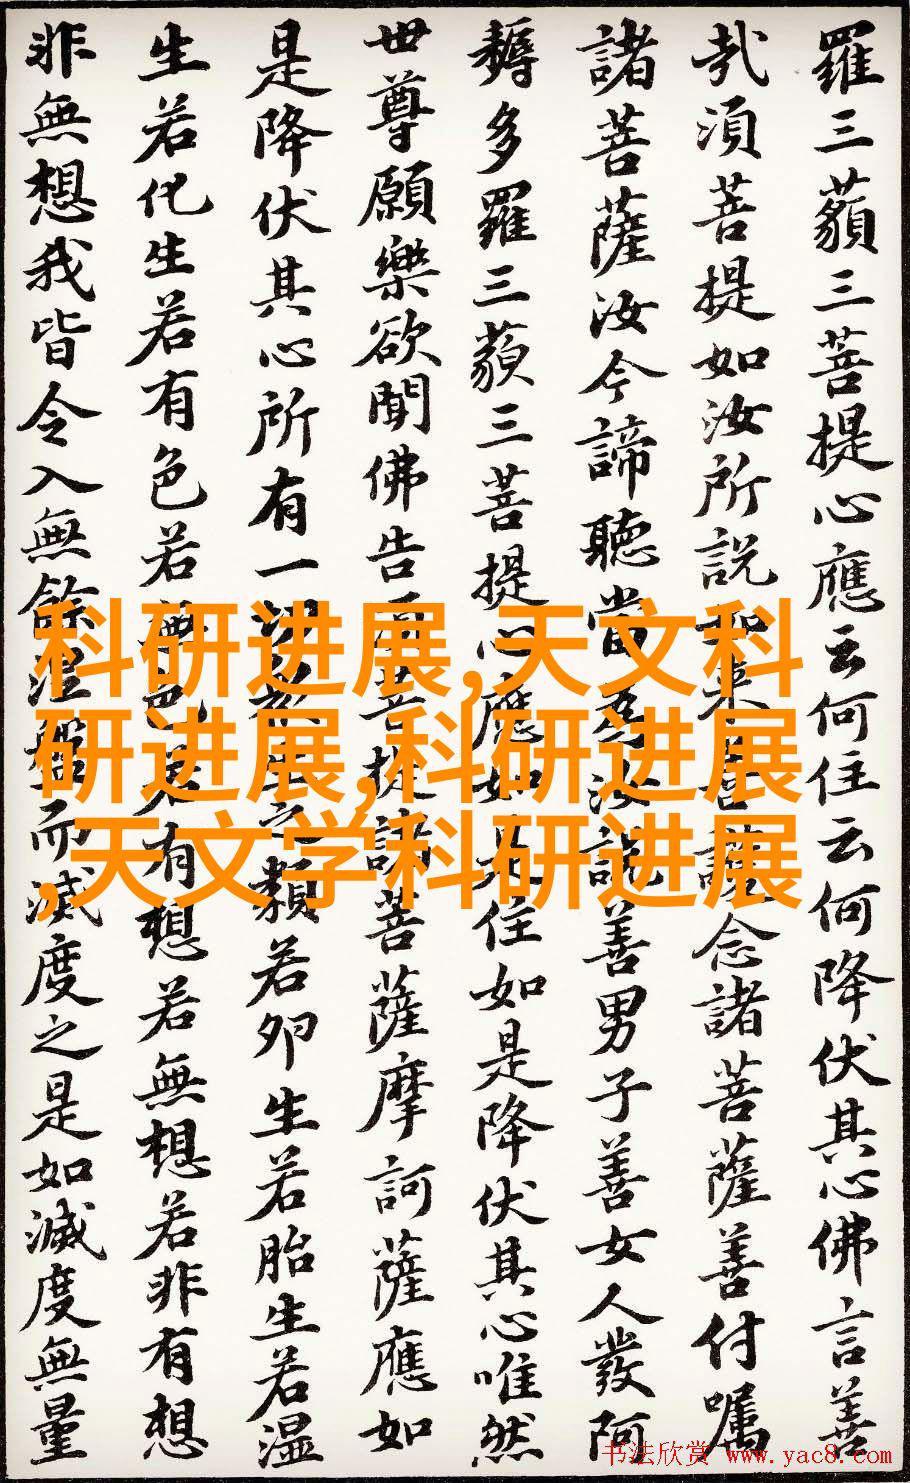 羅三藐三菩提心應云何住云何降伏其心佛言善
哉須菩提如汝所說如来善護念諸菩薩善付囑
諸菩薩汝今諦聽當為汝說善男子善女人發阿
耨多羅三藐三菩提心應如是住如是降伏其心唯然
世尊願樂欲聞佛告須菩提諸菩薩摩訶薩應如
是降伏其心所有一切衆生之類若卵生若胎生若湿
生若化生若有色若無色若有想若無想若非有想
非無想我皆令入無餘涅槃而滅度之是如滅度無量
科研进展,天文科
研进展,科研进展
,天文学科研进展
书法欣赏 www.yac8.com